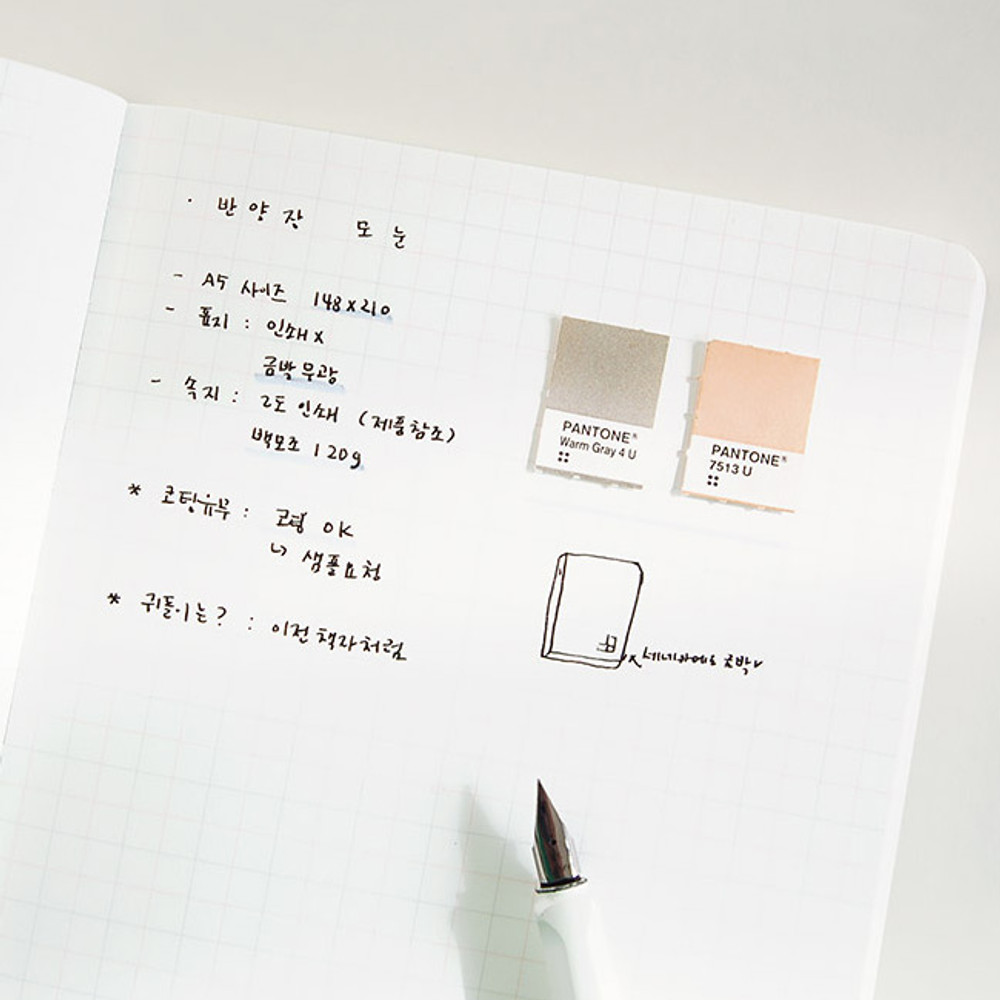 · 반양장 모눈
- A5 사이즈 148x210
- 표지 : 인쇄 x
금박 무광
- 속지 : 2도 인쇄 (제품참조)
백모조 120g
* 코팅유무 : 코팅 OK
↳ 샘플요청
* 귀돌이는? : 이전 책자처럼
PANTONE®
Warm Gray 4 U
PANTONE®
7513 U
금박